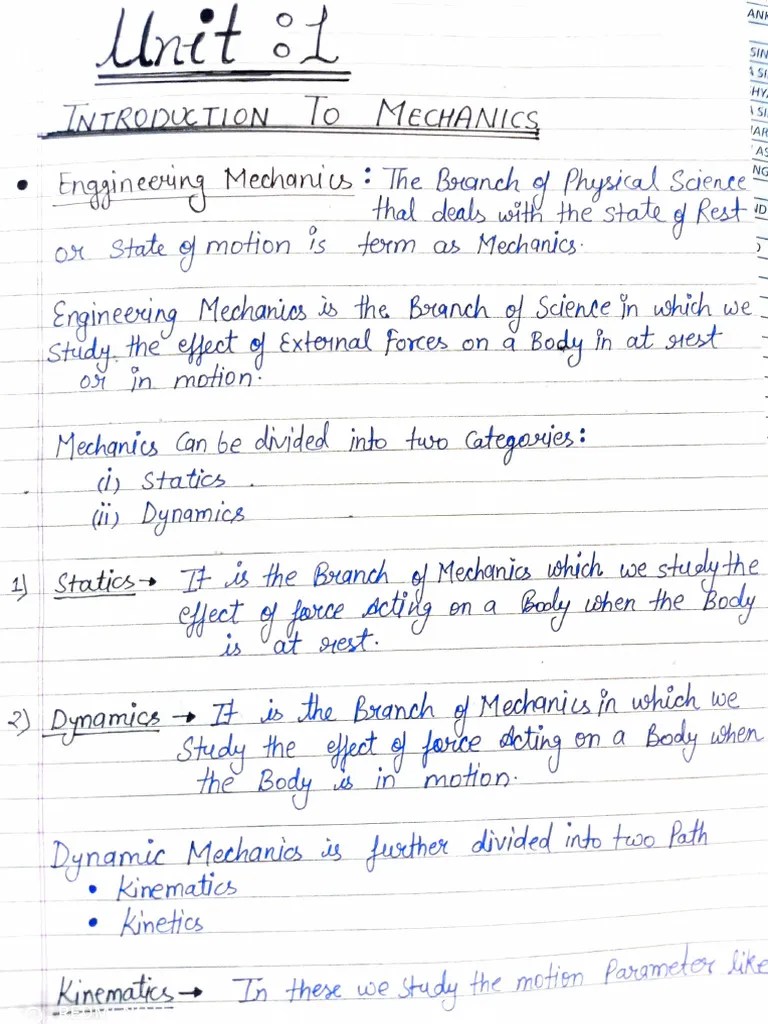 Unit : 1
INTRODUCTION TO MECHANICS
• Enggineering Mechanics : The Branch of Physical Science
that deals with the state of Rest
or State of motion is term as Mechanics.
Engineering Mechanics is the Branch of Science in which we
Study the effect of External Forces on a Body in at rest
or in motion.
Mechanics Can be divided into two Categories:
(i) Statics
(ii) Dynamics
1) Statics → It is the Branch of Mechanics which we study the
effect of force Acting on a Body when the Body
is at rest.
2) Dynamics → It is the Branch of Mechanics in which we
Study the effect of force Acting on a Body when
the Body is in motion.
Dynamic Mechanics is further divided into two Path
• Kinematics
• Kinetics
Kinematics → In these we study the motion Parameter like